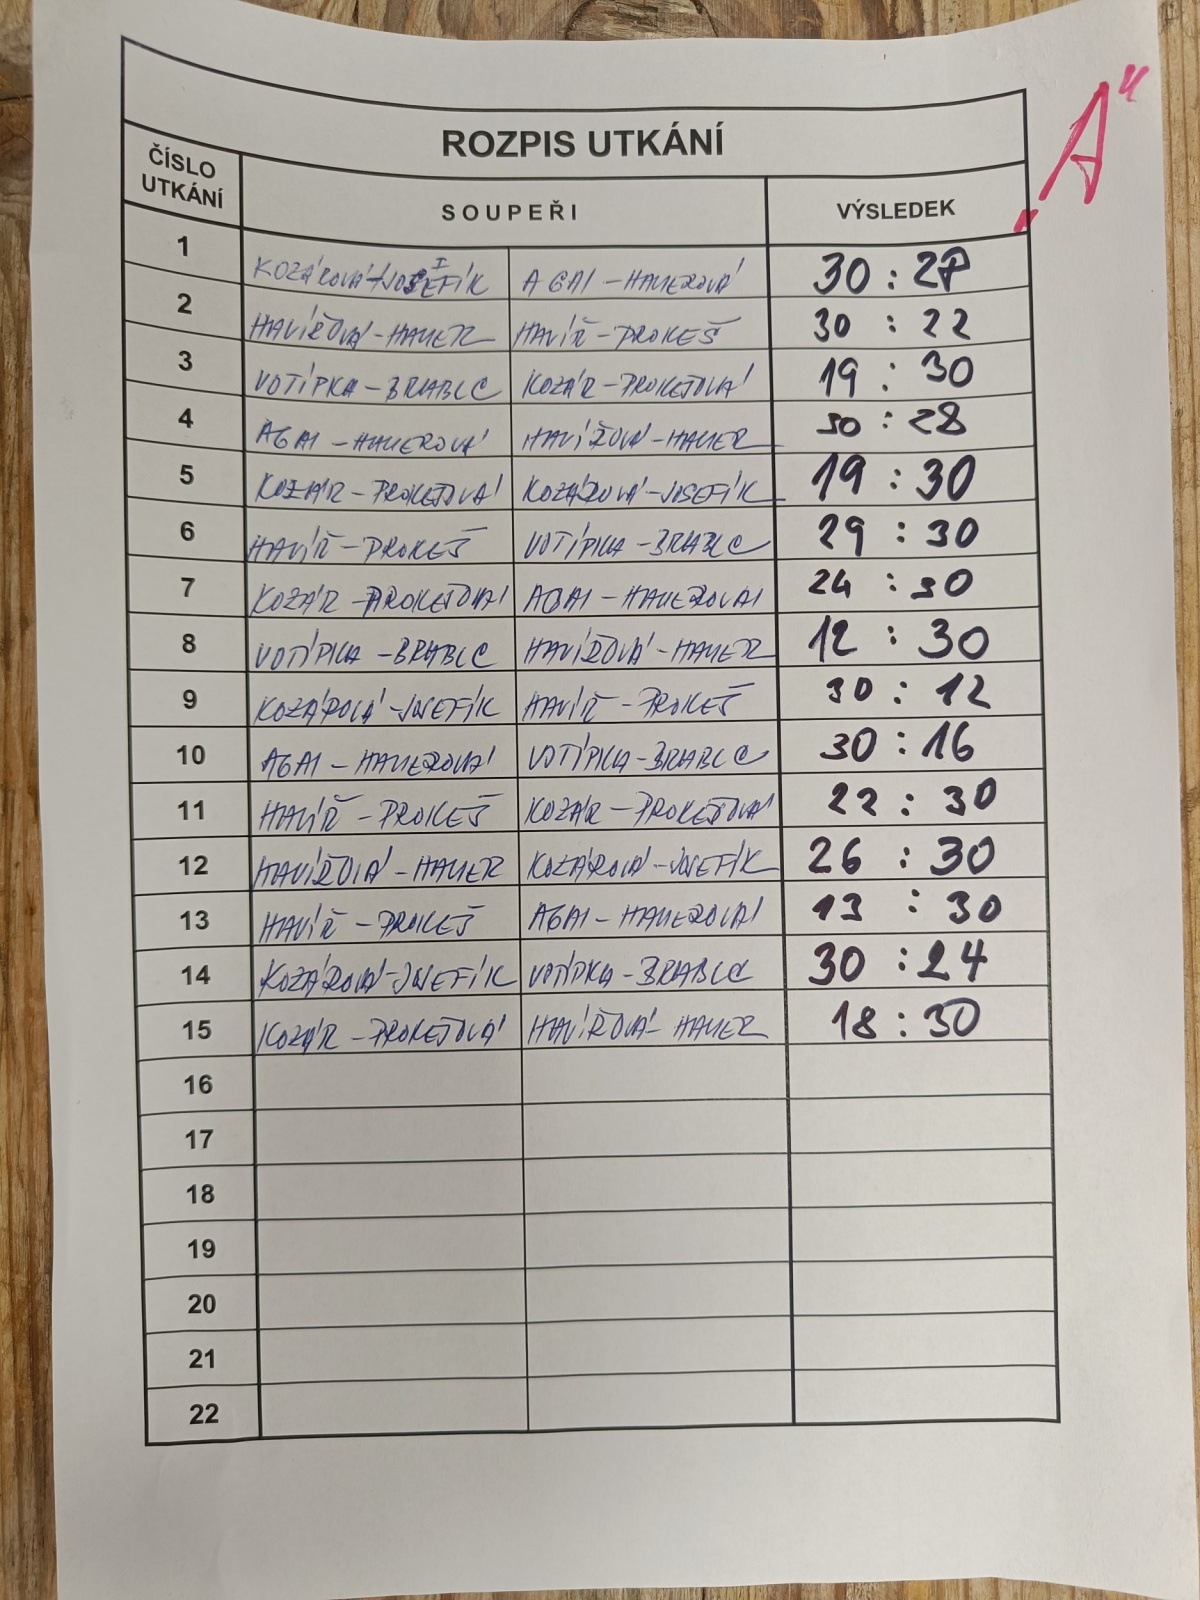 "A"
ROZPIS UTKÁNÍ
ČÍSLO UTKÁNÍ SOUPEŘI VÝSLEDEK
1 KOZÁROVÁ-JOSEFÍK AGAI-HAUEROVÁ 30:27
2 HAVÍŘOVÁ-HAUER HAVÍŘ-PROKEŠ 30:22
3 VOTÍPKA-BRABLC KOZÁR-PROKEŠOVÁ 19:30
4 AGAI-HAUEROVÁ HAVÍŘOVÁ-HAUER 30:28
5 KOZÁR-PROKEŠOVÁ KOZÁROVÁ-JOSEFÍK 19:30
6 HAVÍŘ-PROKEŠ VOTÍPKA-BRABLC 29:30
7 KOZÁR-PROKEŠOVÁ AGAI-HAUEROVÁ 24:30
8 VOTÍPKA-BRABLC HAVÍŘOVÁ-HAUER 12:30
9 KOZÁROVÁ-JOSEFÍK HAVÍŘ-PROKEŠ 30:12
10 AGAI-HAUEROVÁ VOTÍPKA-BRABLC 30:16
11 HAVÍŘ-PROKEŠ KOZÁR-PROKEŠOVÁ 22:30
12 HAVÍŘOVÁ-HAUER KOZÁROVÁ-JOSEFÍK 26:30
13 HAVÍŘ-PROKEŠ AGAI-HAUEROVÁ 13:30
14 KOZÁROVÁ-JOSEFÍK VOTÍPKA-BRABLC 30:24
15 KOZÁR-PROKEŠOVÁ HAVÍŘOVÁ-HAUER 18:30
16
17
18
19
20
21
22